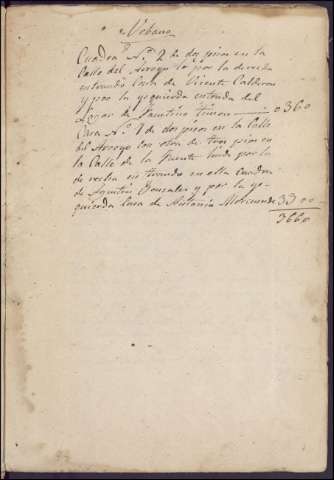 Urbano
Cuadra Nº 2 de dos pisos en la
Calle del Arroyo la por la derecha
entrando Casa de Vicente Calderon
y por la yzquierda entrada del
de Faustino Simon 0360
Casa Nº 1 de dos pisos en la Calle
del Arroyo con otra de tres pisos en
la Calle de la Fuente linde por la
derecha entrando en ella Cuadra
de Agustin Gonzalez y por la yz
quierda Casa de Antonia 3300
3660